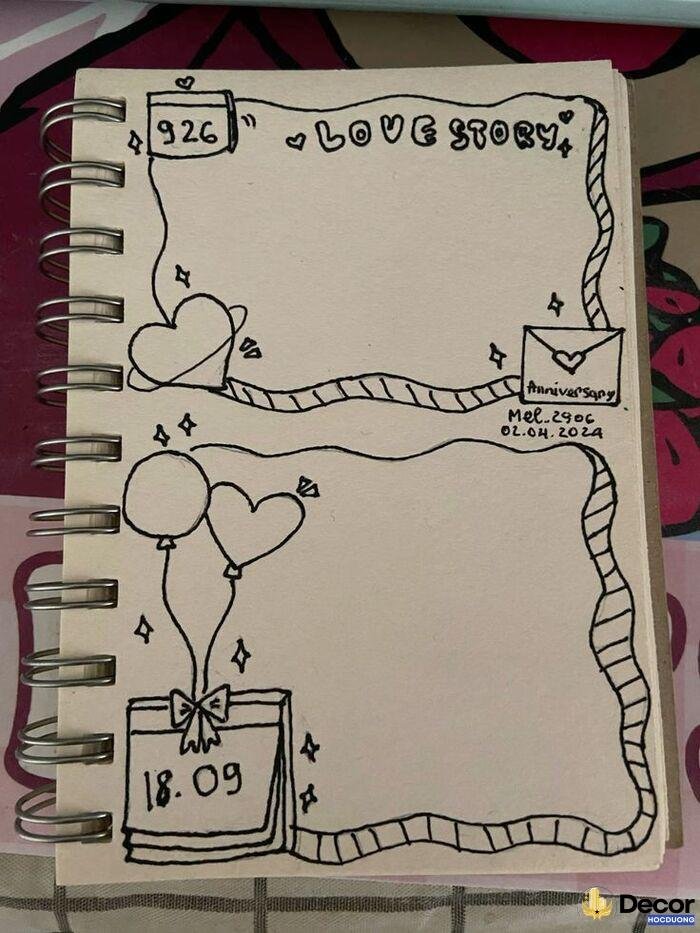 926
LOVE STORY
Anniversary
Mel_2906
02.04.2024
18.09
Decor
HOCDUONG